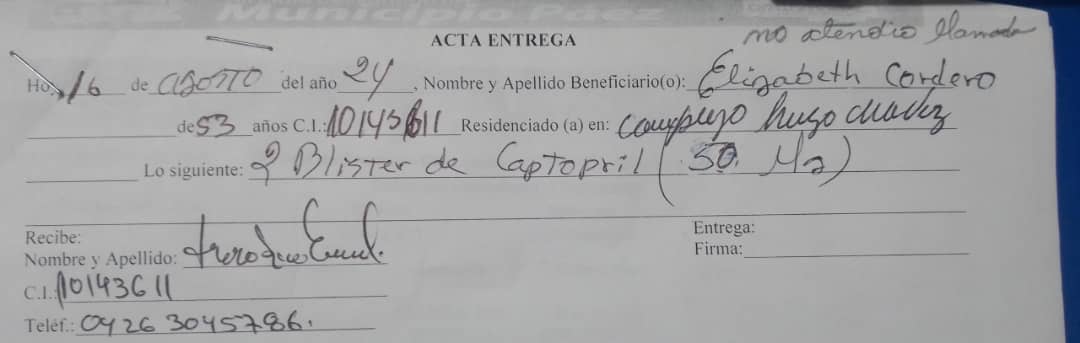 Municipio Páez
ACTA ENTREGA
no atendio llamada
Hoy 16 de agosto del año 24, Nombre y Apellido Beneficiario(o): Elizabeth Cordero
de 53 años C.I.: 10143611 Residenciado (a) en: Complejo hugo chavez
Lo siguiente: 2 Blister de Captopril (50. Mg)
Recibe:
Entrega:
Nombre y Apellido:
Firma:
C.I.: 10143611
Teléf.: 0426 3045786.